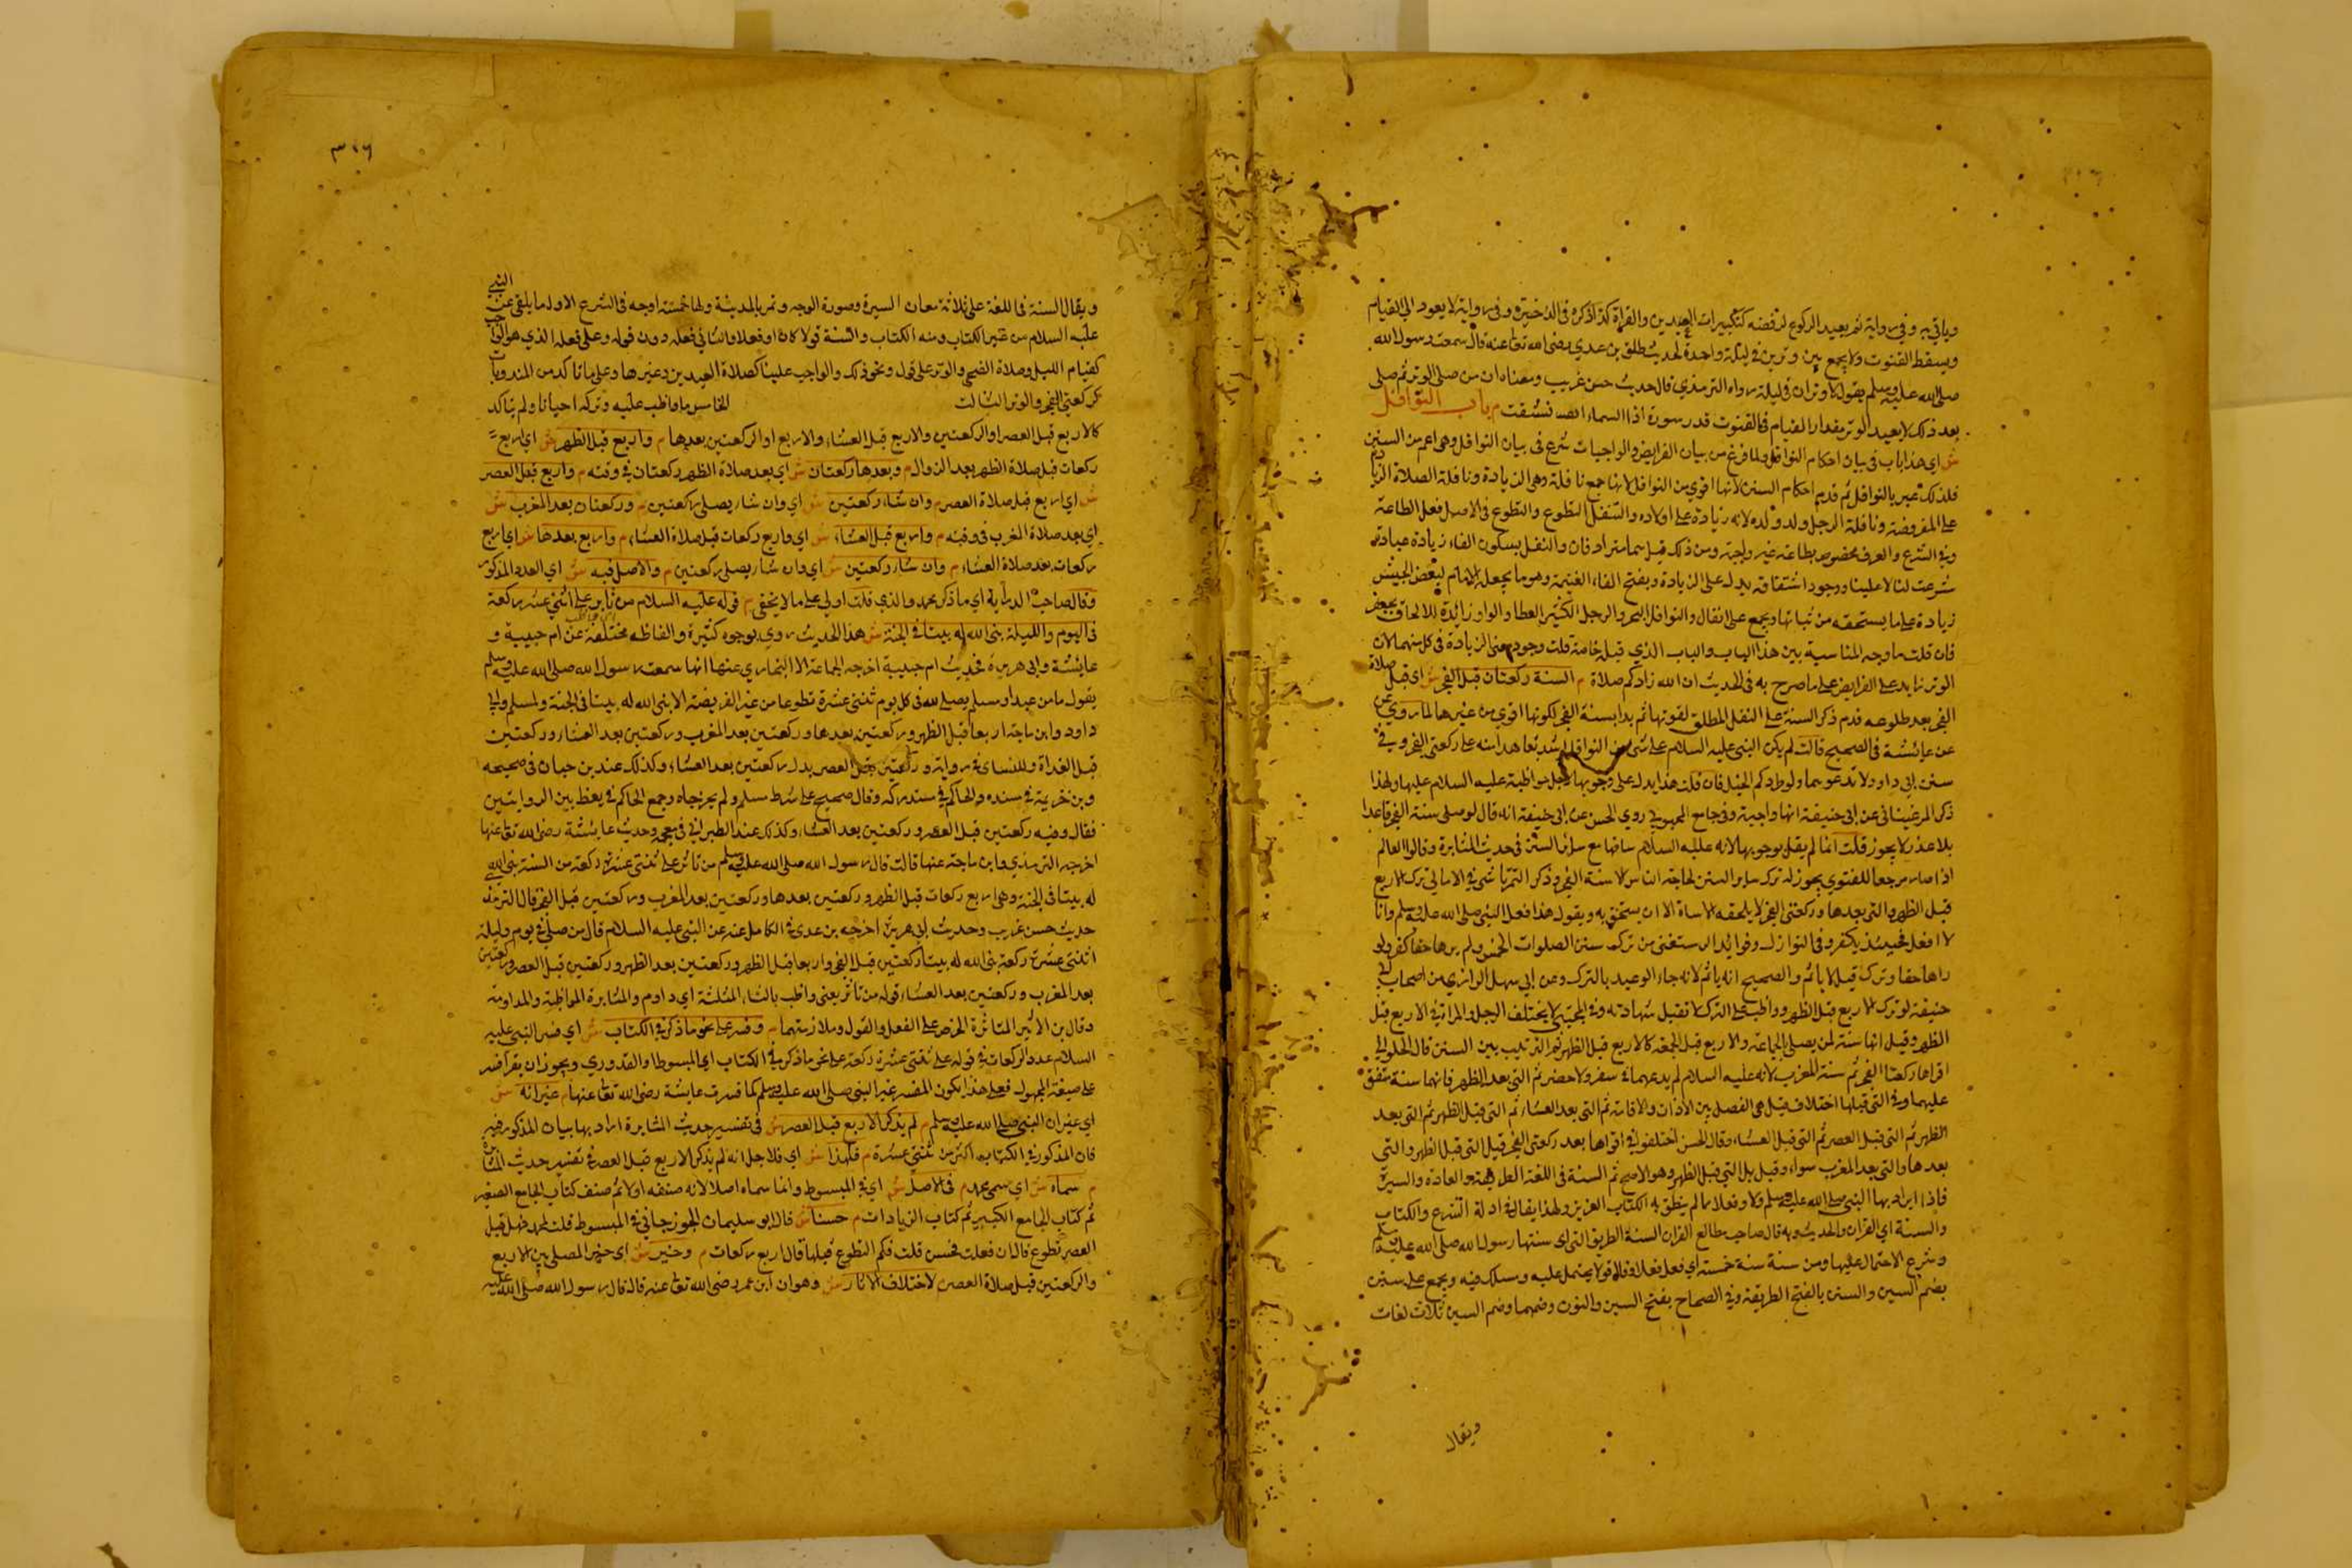 وياتي به وفي رواية ثم يعيد الركوع لرفضه كتكبيرات العيدين والقراة كذا ذكره في الذخيرة وفي رواية لا يعود الي القيام
ويسقط القنوت ولا يجمع بين وترين في ليلة واحدة لحديث طلق بن عدي رضي الله تعا عنه قال سمعت رسول الله
صلي الله عليه وسلم يقول لا وتران في ليلة رواه الترمذي قال حديث حسن غريب ومعناه ان من صلي الوتر ثم صلي
بعد ذلك لا يعيد الوتر مقدار القيام في القنوت قدر سورة اذا السماء انشقت م باب النوافل
ش اي هذا باب في بيان احكام النوافل ولما فرغ من بيان الفرايض والواجبات شرع في بيان النوافل وهي اعم من السنن
فلذلك عبر بالنوافل ثم قدم احكام السنن لانها اقوي من النوافل لانها جمع نافلة وهي الزيادة ونافلة الصلاة الزيادة
علي المفروضة ونافلة الرجل ولد ولده لانه زيادة علي اولاده والتنفل التطوع والتطوع في الاصل فعل الطاعة
وفي الشرع والعرف مخصوص بطاعة غير واجبة ومن ذلك قيل هما مترادفان والنفل بسكون الفاء زيادة عبادة
شرعت لنا لا علينا ووجود اشتقاقه يدل علي الزيادة وبفتح الفاء الغنيمة وهو ما يجعله الامام لبعض الجيش
زيادة علي ما يستحقه من وجمع علي انفال والنوفل البحر والرجل الكثير العطاء والواو زائدة للالحاق بجعفر
فان قلت ما وجه المناسبة بين هذا الباب والباب الذي قبله خاصة قلت وجود معني الزيادة في كل منهما لان
الوتر زايد علي الفرايض علي ما صرح به في الحديث ان الله زادكم صلاة م السنة ركعتان قبل الفجر ش اي قبل صلاة
الفجر بعد طلوعه قدم ذكر السنة علي النفل المطلق لقوتها ثم بدا بسنة الفجر لكونها اقوي من غيرها لما روي عن
عن عايشة في الصحيح قالت لم يكن النبي عليه السلام علي شي من النوافل اشد تعاهدا منه علي ركعتي الفجر وفي
سنن ابي داود لا تدعوهما ولو طردكم الخيل فان قلت هذا يدل علي وجوبها لاجل مواظبة عليه السلام عليها ولهذا
ذكر المرغيناني عن ابي حنيفة انها واجبة وفي جامع المحبوبي روي الحسن عن ابي حنيفة انه قال لو صلي سنة الفجر قاعدا
بلا عذر لا يجوز قلت انما لم يقل بوجوبها لانه عليه السلام ساقها مع سائر السنن في حديث المثابرة وقالوا العالم
اذا صار مرجعا للفتوي يجوز له ترك ساير السنن لحاجة الناس الا سنة الفجر وذكر التمرتاشي في الامالي ترك الاربع
قبل الظهر والتي بعدها وركعتي الفجر لا يلحقه الاساة الا ان يستخف به ويقول هذا فعل النبي صلي الله عليه وسلم وانا
لا افعل فحينئذ يكفر وفي النوازل وفوائد الرستغفني من ترك سنن الصلوات الخمس ولم يرها حقا كفر ولو
راها حقا وترك قيل لا ياثم والصحيح انه ياثم لانه جاء الوعيد بالترك وعن ابي سهل الرازي من اصحاب ابي
حنيفة لو ترك الاربع قبل الظهر وواظب علي الترك لا تقبل شهادته وفي المجتبي لا يختلف الرجل والمراة في الاربع قبل
الظهر وقيل انها سنة لمن يصلي الجماعة والاربع قبل الجمعة كالاربع قبل الظهر ثم الترتيب بين السنن قال الحلواني
اقواها ركعتا الفجر ثم سنة المغرب لانه عليه السلام لم يدعهما في سفر ولا حضر ثم التي بعد الظهر فانها سنة متفق
عليها وفي التي قبلها اختلاف قيل هي الفصل بين الاذان والاقامة ثم التي بعد العشاء ثم التي قبل الظهر ثم التي بعد
الظهر ثم التي قبل العصر ثم التي قبل العشاء وقال الحسن اختلفوا في اقواها بعد ركعتي الفجر قيل التي قبل الظهر والتي
بعدها والتي بعد المغرب سواء وقيل بل التي قبل الظهر وهو الاصح ثم السنة في اللغة الطريقة والعادة والسيرة
فاذا اريد بها النبي صلي الله عليه وسلم قولا وفعلا مما لم ينطق به الكتاب العزيز ولهذا يقال في ادلة الشرع والكتاب
والسنة اي القران والحديث وبه قال صاحب مطالع القران السنة الطريق التي اي سنتها رسول الله صلي الله عليه وسلم
وشرع الاحتمال عليها ومن سنة سنة حسنة اي فعل فعلا وقال قولا يحتمل عليه وسلك فيه ويجمع علي سنن
بضم السين والسنن بالفتح الطريقة وفي الصحاح بفتح السين والنون وضمهما وضم السين ثلاث لغات
ويقال
٣٠٦
ويقال السنة في اللغة علي ثلاثة معان السيرة وصورة الوجه وتمر بالمدينة ولها خمسة اوجه في الشرع الاول ما يلقي عن النبي
عليه السلام من غير الكتاب ومنه الكتاب والسنة قولا كان او فعلا والثاني فعله دون قوله وعلي فعله الذي هو الواجب
كقيام الليل وصلاة الضحي والوتر علي قول ونحو ذلك والواجب علينا كصلاة العيدين وغيرها وعلي ما تاكد من المندوبات
كركعتي الفجر والوتر الثالث الخامس ما واظب عليه وتركه احيانا ولم يتاكد
كالاربع قبل العصر او الركعتين والاربع قبل العشاء والاربع او الركعتين بعدها م واربع قبل الظهر ش اي اربع
ركعات قبل صلاة الظهر بعد الزوال م وبعدها ركعتان ش اي بعد صلاة الظهر ركعتان في وقته م واربع قبل العصر
ش اي اربع قبل صلاة العصر م وان شاء ركعتين ش اي وان شاء يصلي ركعتين م وركعتان بعد المغرب ش
اي بعد صلاة المغرب في وقته م واربع قبل العشاء ش اي واربع ركعات قبل صلاة العشاء م واربع بعدها ش اي اربع
ركعات بعد صلاة العشاء م وان شاء ركعتين ش اي وان شاء يصلي ركعتين م والاصل فيه ش اي العدد المذكور
وقال صاحب الدراية اي ما ذكر محمد والذي قلت اولي علي ما لا يخفي م قوله عليه السلام من ثابر علي اثنتي عشر ركعة
في اليوم والليلة بني الله له بيتا في الجنة ش هذا الحديث روي بوجوه كثيرة والفاظه مختلفة عن ام حبيبة و
عايشة وابي هريرة فحديث ام حبيبة اخرجه الجماعة الا البخاري عنها انها سمعت رسول الله صلي الله عليه وسلم
يقول ما من عبد مسلم يصلي لله في كل يوم ثنتي عشرة تطوعا من غير الفريضة الا بني الله له بيتا في الجنة ولمسلم ولابي
داود وابن ماجة اربعا قبل الظهر وركعتين بعدها وركعتين بعد المغرب وركعتين بعد العشاء وركعتين
قبل الغداة وللنساي في رواية وركعتين قبل العصر بدل ركعتين بعد العشاء وكذلك عند بن حبان في صحيحه
وبن خزيمة في سنده والحاكم في مستدركه وقال صحيح علي شرط مسلم ولم يخرجاه وجمع الحاكم في لفظ بين الروايتين
فقال وفيه ركعتين قبل العصر وركعتين بعد العشاء وكذلك عند الطبراني في معجمه وحديث عايشة رضي الله تعا عنها
اخرجه الترمذي وابن ماجة عنها قالت قال رسول الله صلي الله عليه وسلم من ثابر علي ثنتي عشرة ركعة من السنة بني الله
له بيتا في الجنة وهي اربع ركعات قبل الظهر وركعتين بعدها وركعتين بعد المغرب وركعتين قبل الفجر قال الترمذي
حديث حسن غريب وحديث ابي هريرة اخرجه بن عدي في الكامل عنه عن النبي عليه السلام قال من صلي في يوم وليلة
اثنتي عشرة ركعة بني الله له بيتا ركعتين قبل الفجر واربعا قبل الظهر وركعتين بعد الظهر وركعتين قبل العصر وركعتين
بعد المغرب وركعتين بعد العشاء قوله من ثابر يعني واظب بالثاء المثلثة اي داوم والمثابرة المواظبة والمداومة
وقال بن الاثير المثابرة الحرص علي الفعل والقول وملازمتهما م وفسر علي نحو ما ذكر في الكتاب ش اي فسر النبي عليه
السلام عدد الركعات في قوله علي ثنتي عشرة ركعة علي نحو ما ذكر في الكتاب اي المبسوط او القدوري ويجوز ان يقرا فسر
علي صيغة المجهول فعلي هذا يكون المفسر غير النبي صلي الله عليه وسلم كما فسرت عايشة رضي الله تعا عنها م غير انه ش
اي غير ان النبي صلي الله عليه وسلم م لم يذكر الاربع قبل العصر ش في تفسير حديث المثابرة اراد بها بيان المذكور فيه
فان المذكور في الكتاب اكثر من ثنتي عشرة م فلهذا ش اي فلاجل انه لم يذكر الاربع قبل العصر في تفسير حديث المثابرة
م سماه ش اي سمي محمد م في الاصل ش اي في المبسوط وانما سماه اصلا لانه صنفه اولا ثم صنف كتاب الجامع الصغير
ثم كتاب الجامع الكبير ثم كتاب الزيادات م حسنا ش قال ابو سليمان الجوزجاني في المبسوط قلت لمحمد فهل قبل
العصر تطوع قال ان فعلت فحسن قلت فكم التطوع قبلها قال اربع ركعات م وخير ش اي خير المصلي بين الاربع
والركعتين قبل صلاة العصر م لاختلاف الاثار ش وهو ان ابن عمر رضي الله تعا عنه قال قال رسول الله صلي الله عليه